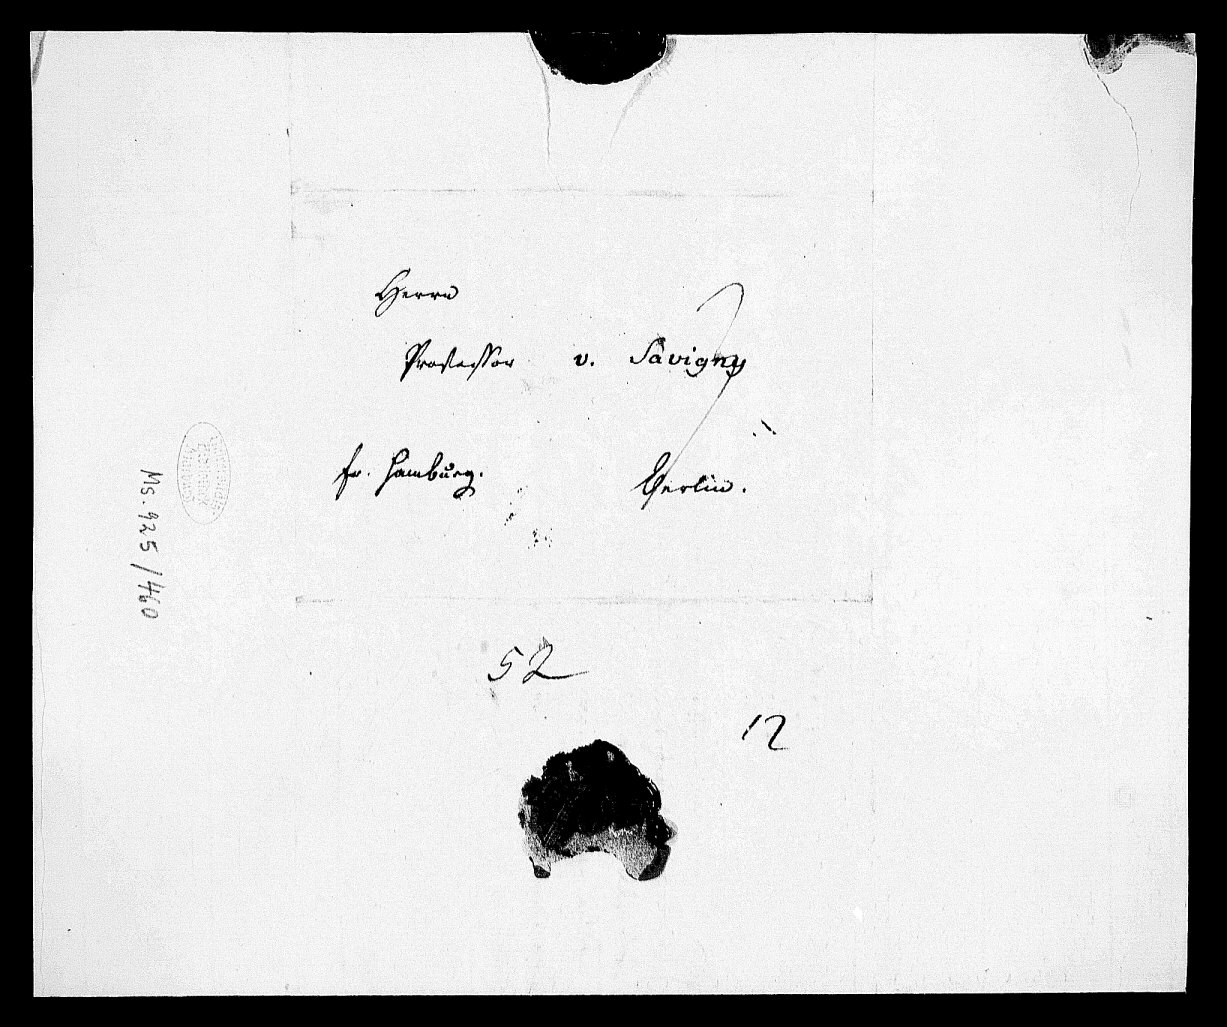 Herrn
Professor v. Savigny
fr. Hamburg. Berlin.
52
12
Ms. 925/460